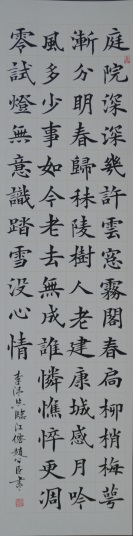 庭院深深幾許雲窓霧閣春扃柳梢梅萼
漸分明春歸秣陵樹人老建康城感月吟
風多少事如今老去無成誰憐憔悴更凋
零試燈無意識踏雪没心情
李清照臨江僊